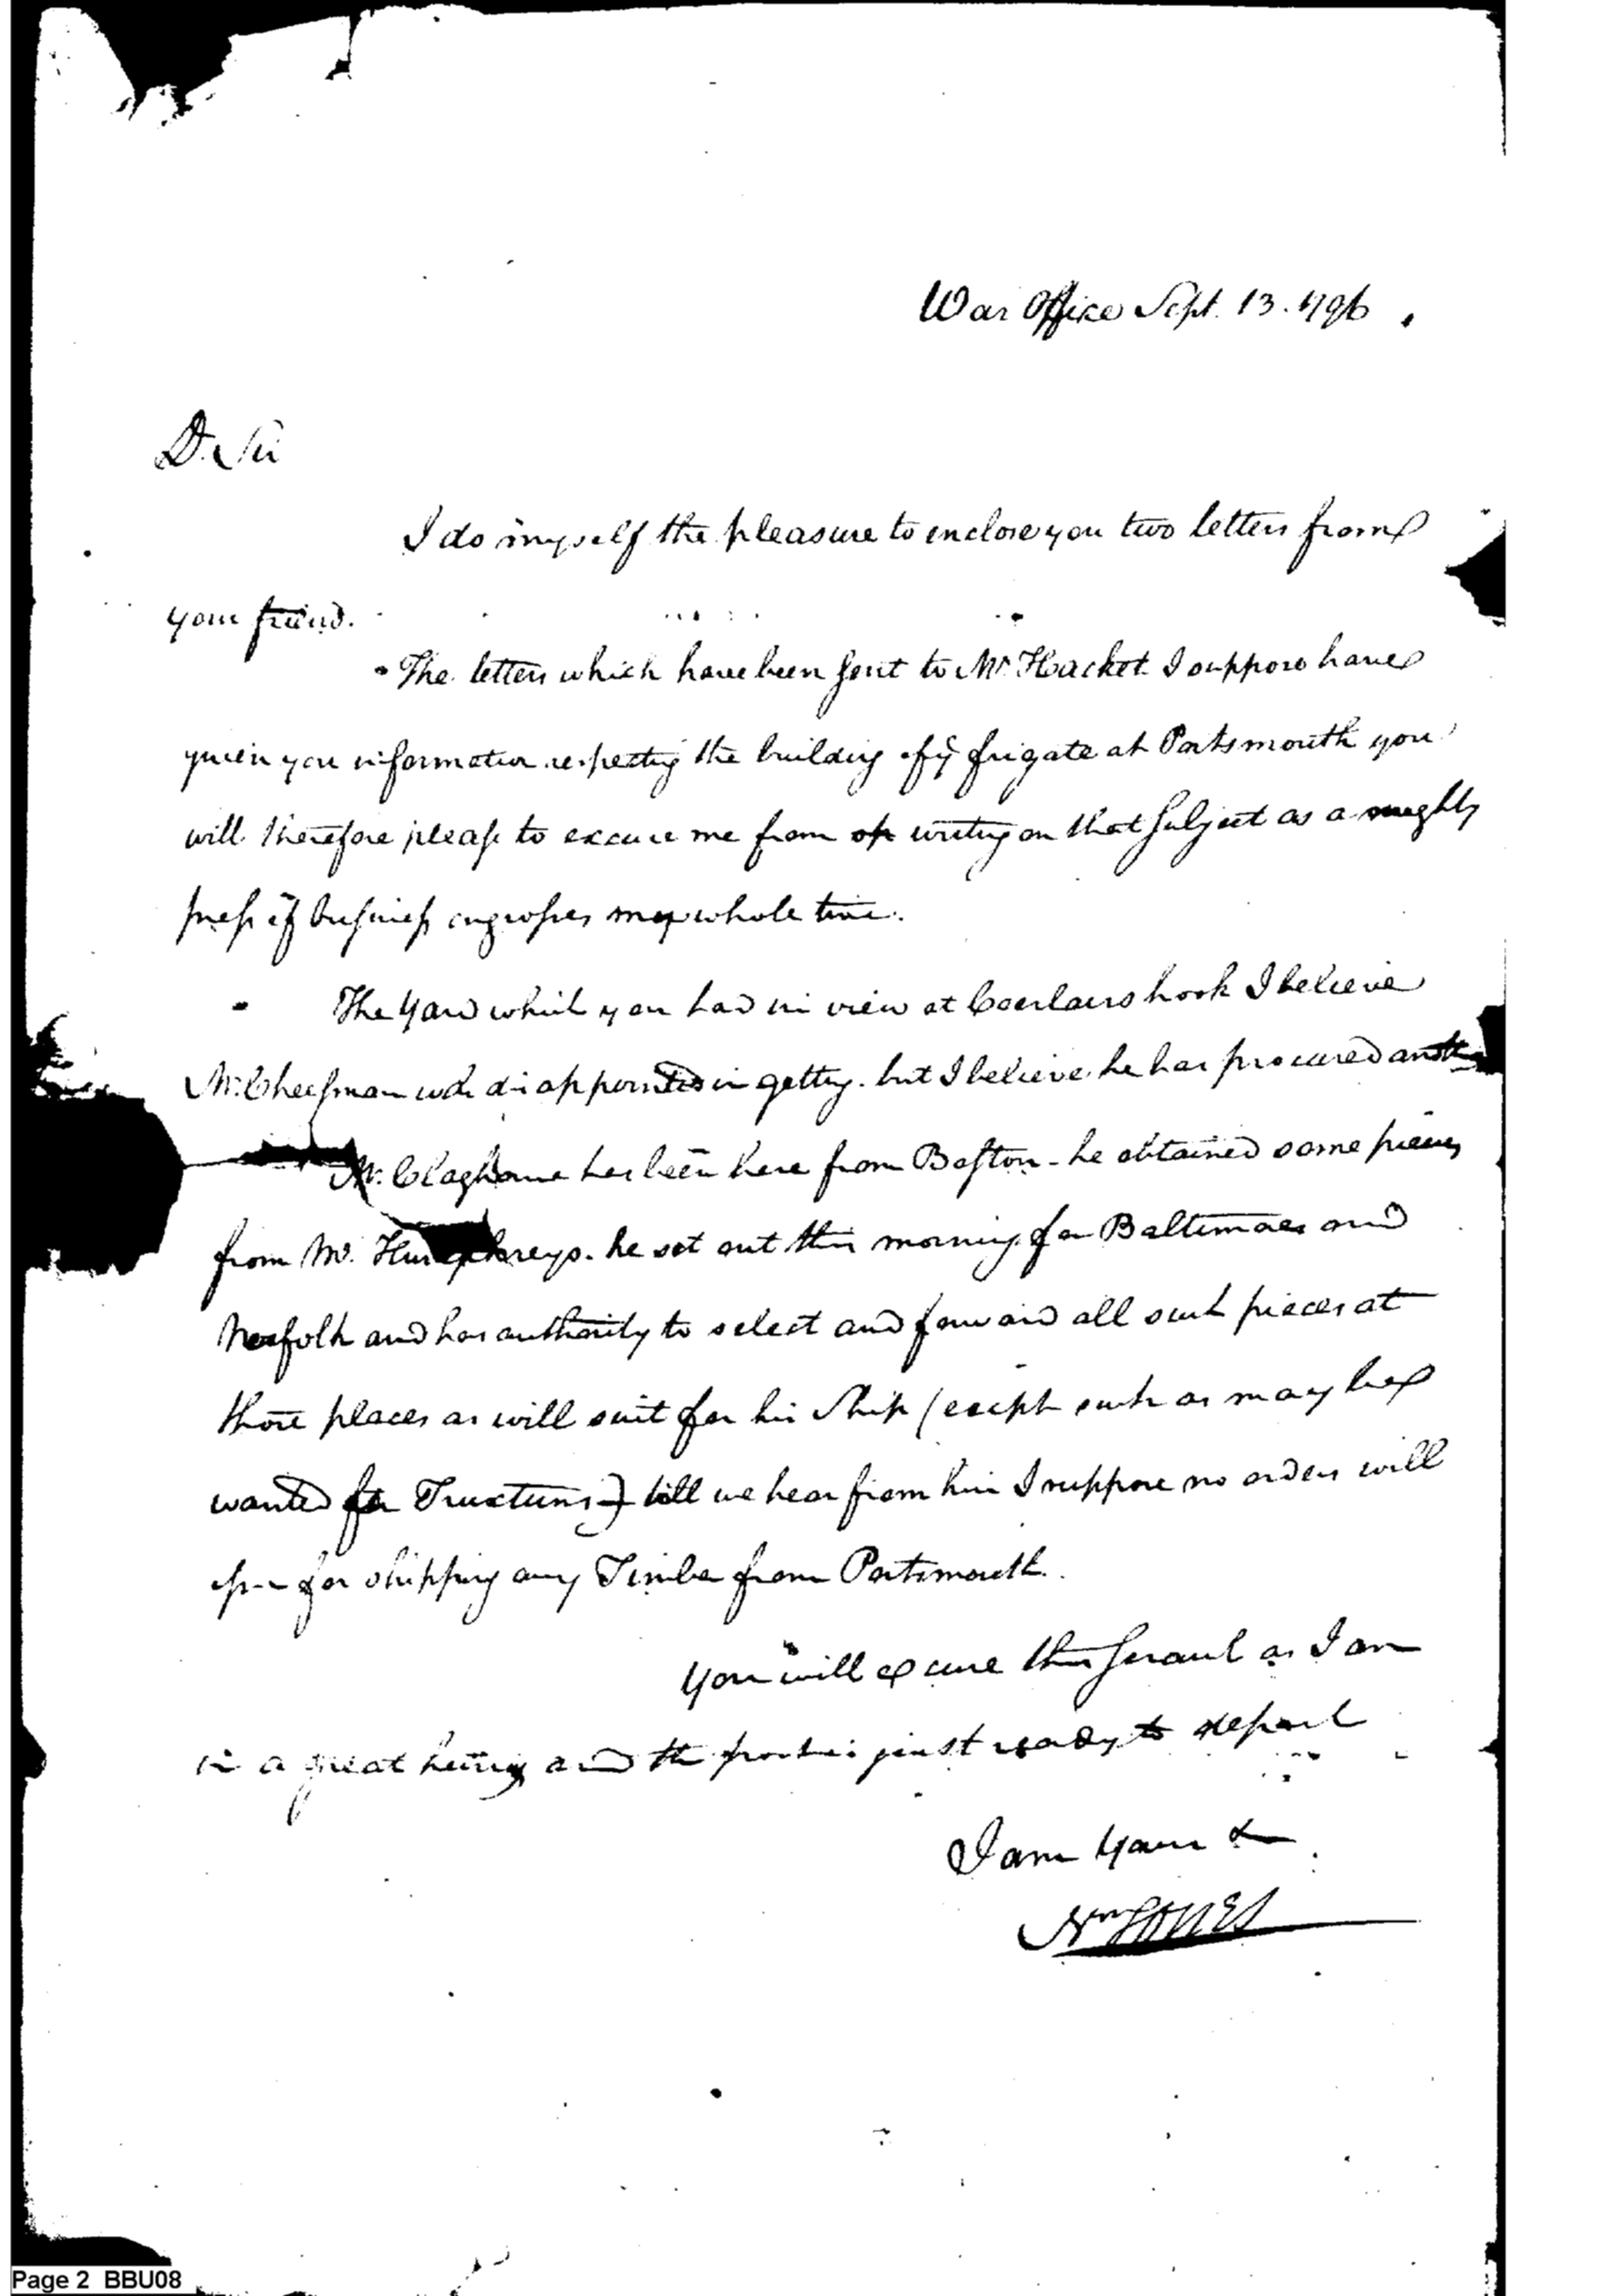 War Office Sept. 13. 1796.
D. Sir
I do myself the pleasure to enclose you two letters from
your friend.
The letters which have been sent to Mr. Hacket I suppose have
given you information respecting the building of ye frigate at Portsmouth you
will therefore please to excuse me from writing on that subject as a mighty
press of business engrosses my whole time.
The Yard which you had in view at Coerlaers hook I believe
Mr. Cheesman was disappointed in getting. but I believe he has procured another
Mr. Claghorne has been here from Boston - he obtained some pieces
from Mr. Humphreys. he set out this morning for Baltimore and
Norfolk and has authority to select and forward all such pieces at
those places as will suit for his Ship (except such as may be
wanted for Truxtuns) till we hear from him I suppose no orders will
for shipping any Timber from Portsmouth.
You will excuse this scrawl as I am
in a great hurry and the post is just ready to depart
I am Yours &
Page 2 BBU08